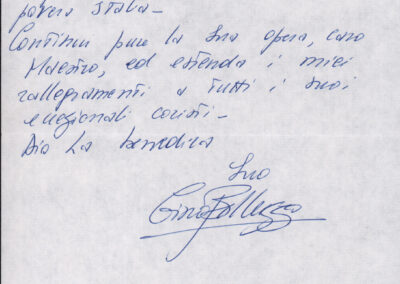 povera Italia -
Continui pure la Sua opera, caro
Maestro, ed estenda i miei
rallegramenti a tutti i Suoi
eccezionali coristi -
Dio La benedica
Suo
Gino